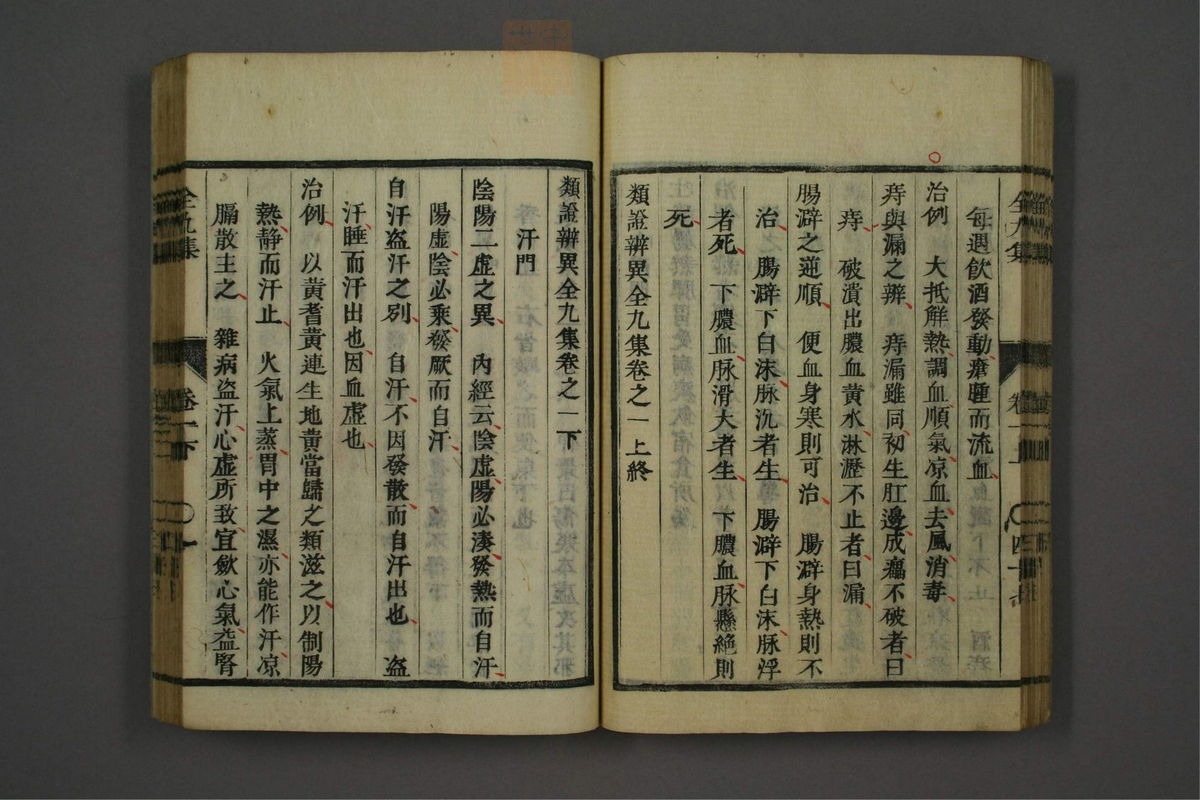 每遇飲酒發動瘡腫而流血
治例　大抵解熱調血順氣凉血去風消毒
痔與漏之辨　痔漏雖同初生肛邊成癟不破者曰
痔　破潰出膿血黄水淋瀝不止者曰漏
腸澼之逆順　便血身寒則可治　腸澼身熱則不
治　腸澼下白沫脉沉者生　腸澼下白沫脉浮
者死　下膿血脉滑大者生　下膿血脉懸絶則
死
類證辨異全九集卷之一上終
全九集　卷一上
類證辨異全九集卷之一下
汗門
陰陽二虛之異　内經云陰虛陽必湊發熱而自汗
陽虛陰必乘發厥而自汗
自汗盗汗之別　自汗不因發散而自汗出也　盗
汗睡而汗出也因血虛也
治例　以黄耆黄連生地黄當歸之類滋之以制陽
熱静而汗止　火氣上蒸胃中之濕亦能作汗凉
膈散主之　雜病盗汗心虛所致宜斂心氣益腎
全九集　卷一下　一